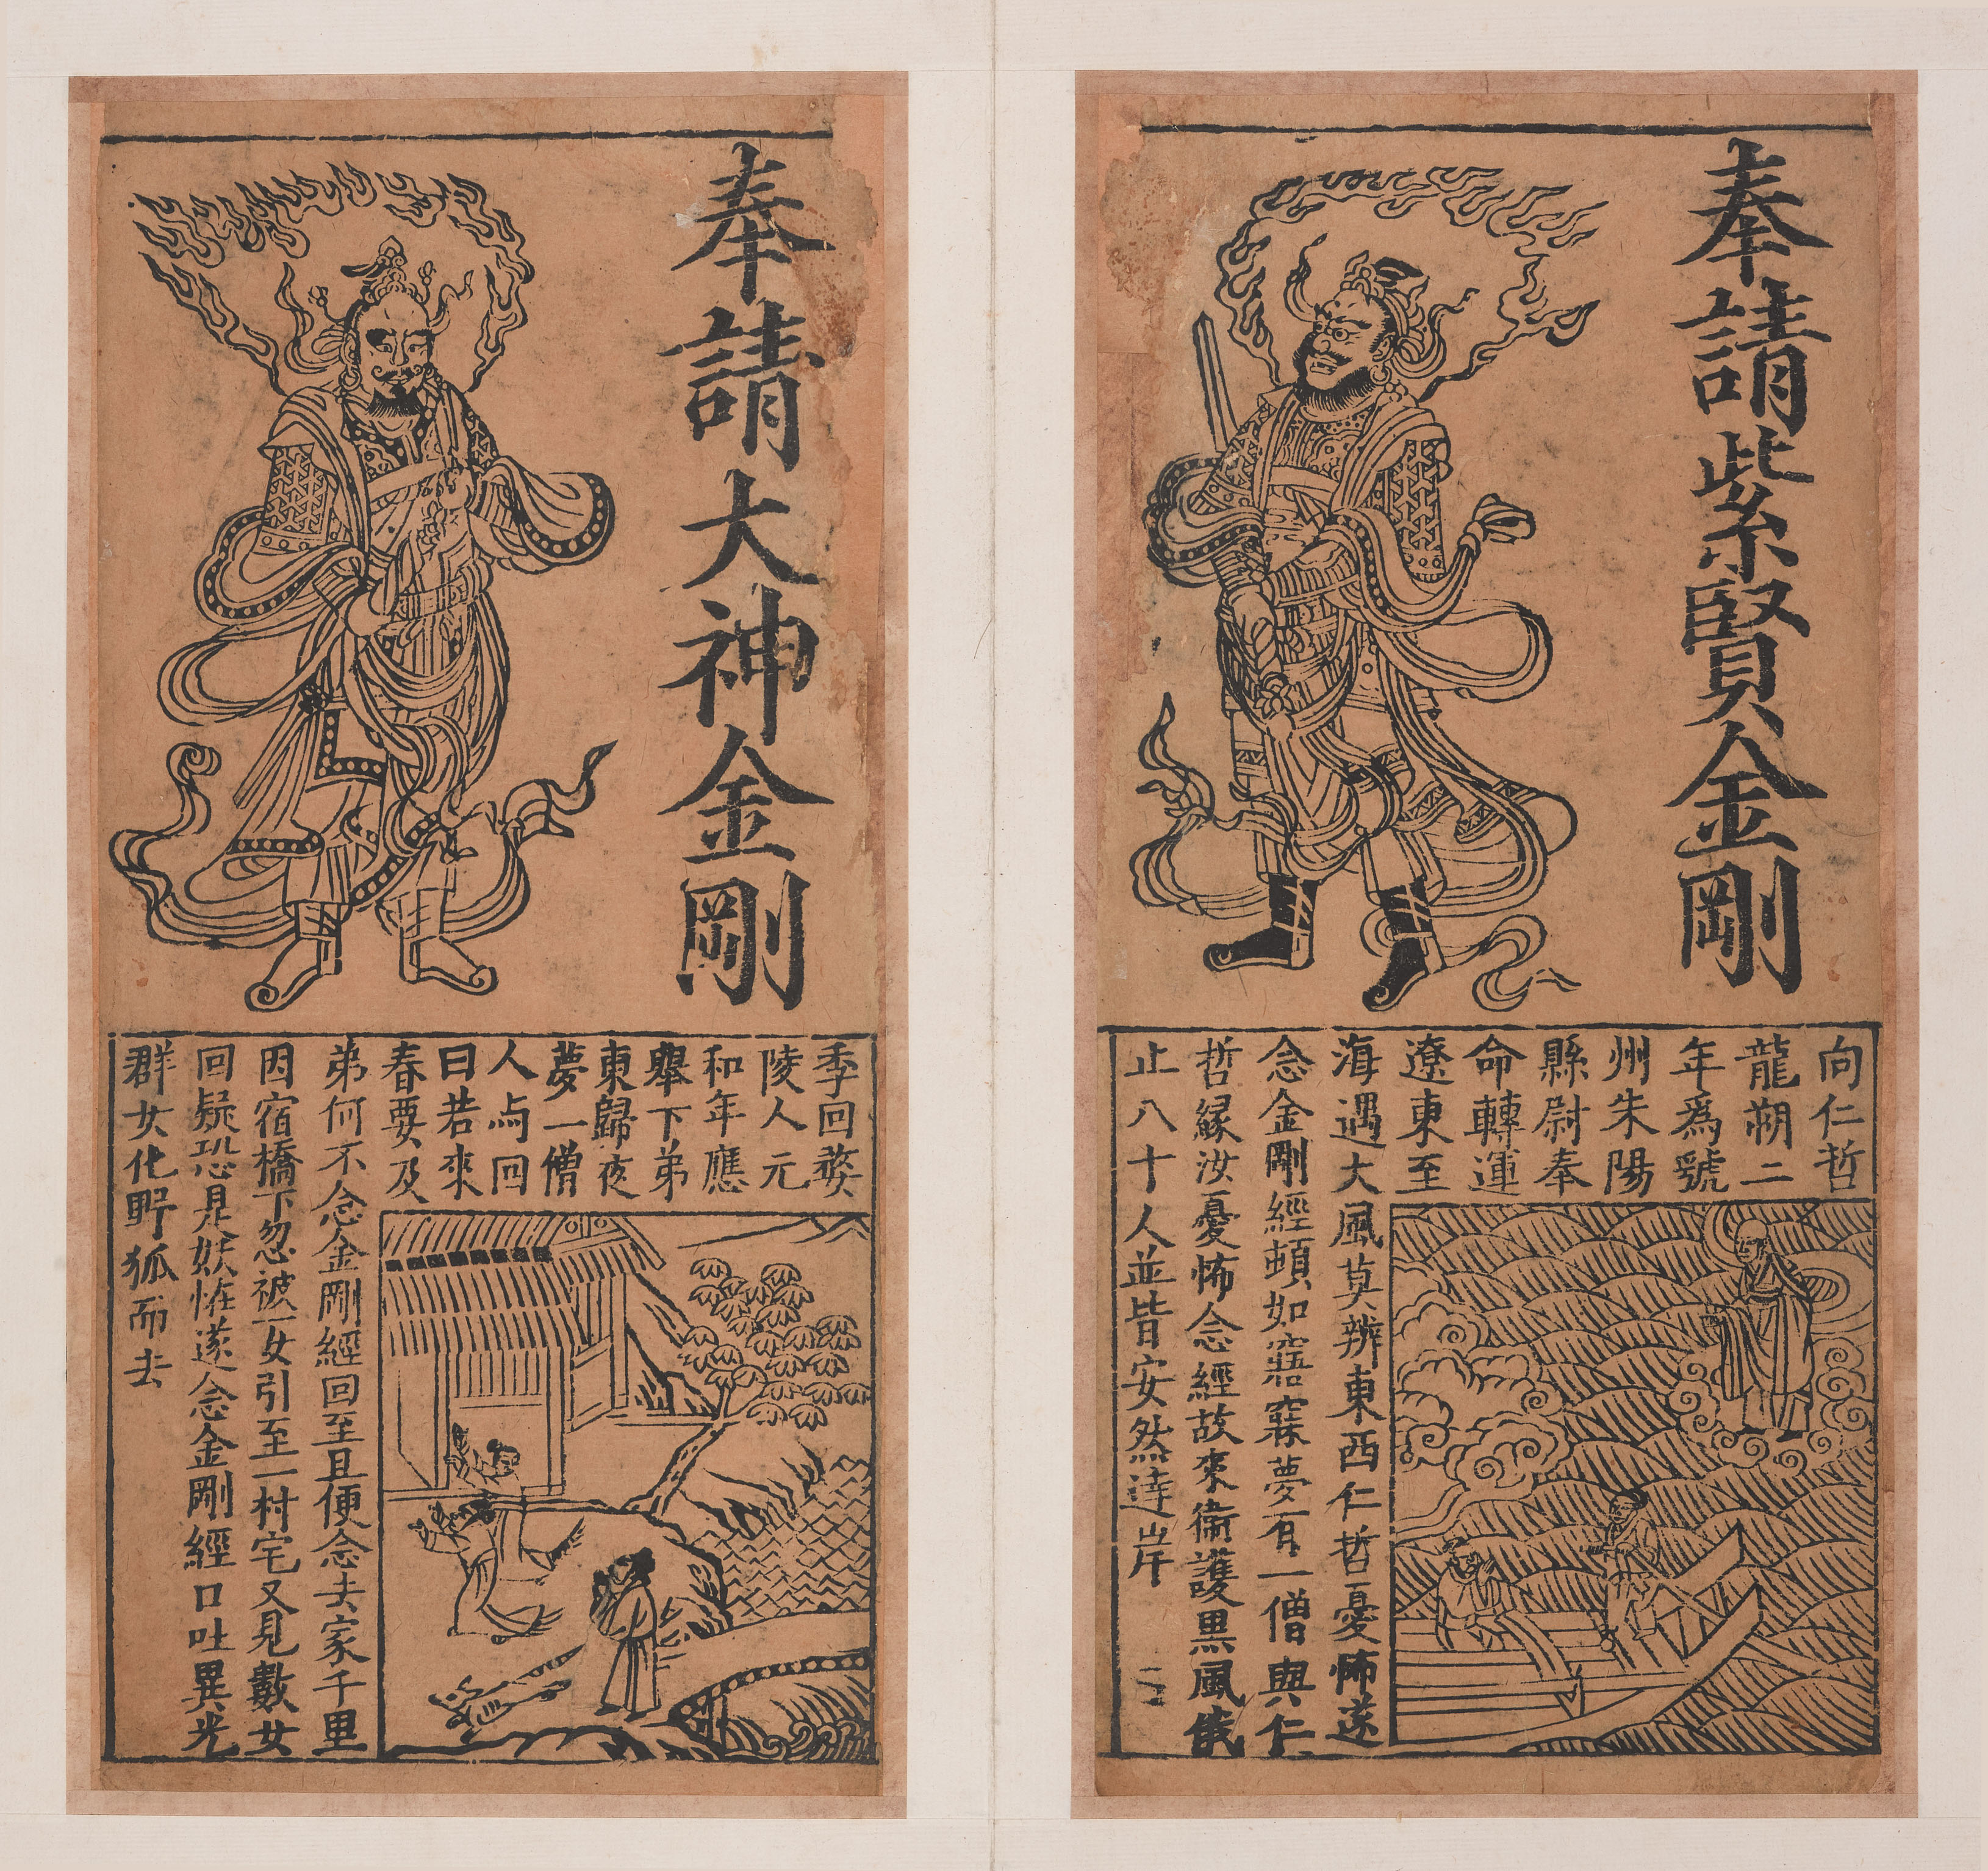 奉請紫賢金剛
向仁哲
龍朔二
年爲號
州朱陽
縣尉奉
命轉運
遼東至
海遇大風莫辨東西仁哲憂怖遂
念金剛經頓如寤寐夢有一僧與仁
哲緣汝憂怖念經故來衞護黑風俄
止八十人並皆安然達岸 二
奉請大神金剛
季回婺
陵人元
和年應
舉下弟
東歸夜
夢一僧
人与回
曰若來
春要及
弟何不念金剛經回至且便念去家千里
因宿橋下忽被一女引至一村宅又見數女
回疑恐是妖恠遂念金剛經口吐異光
群女化野狐而去